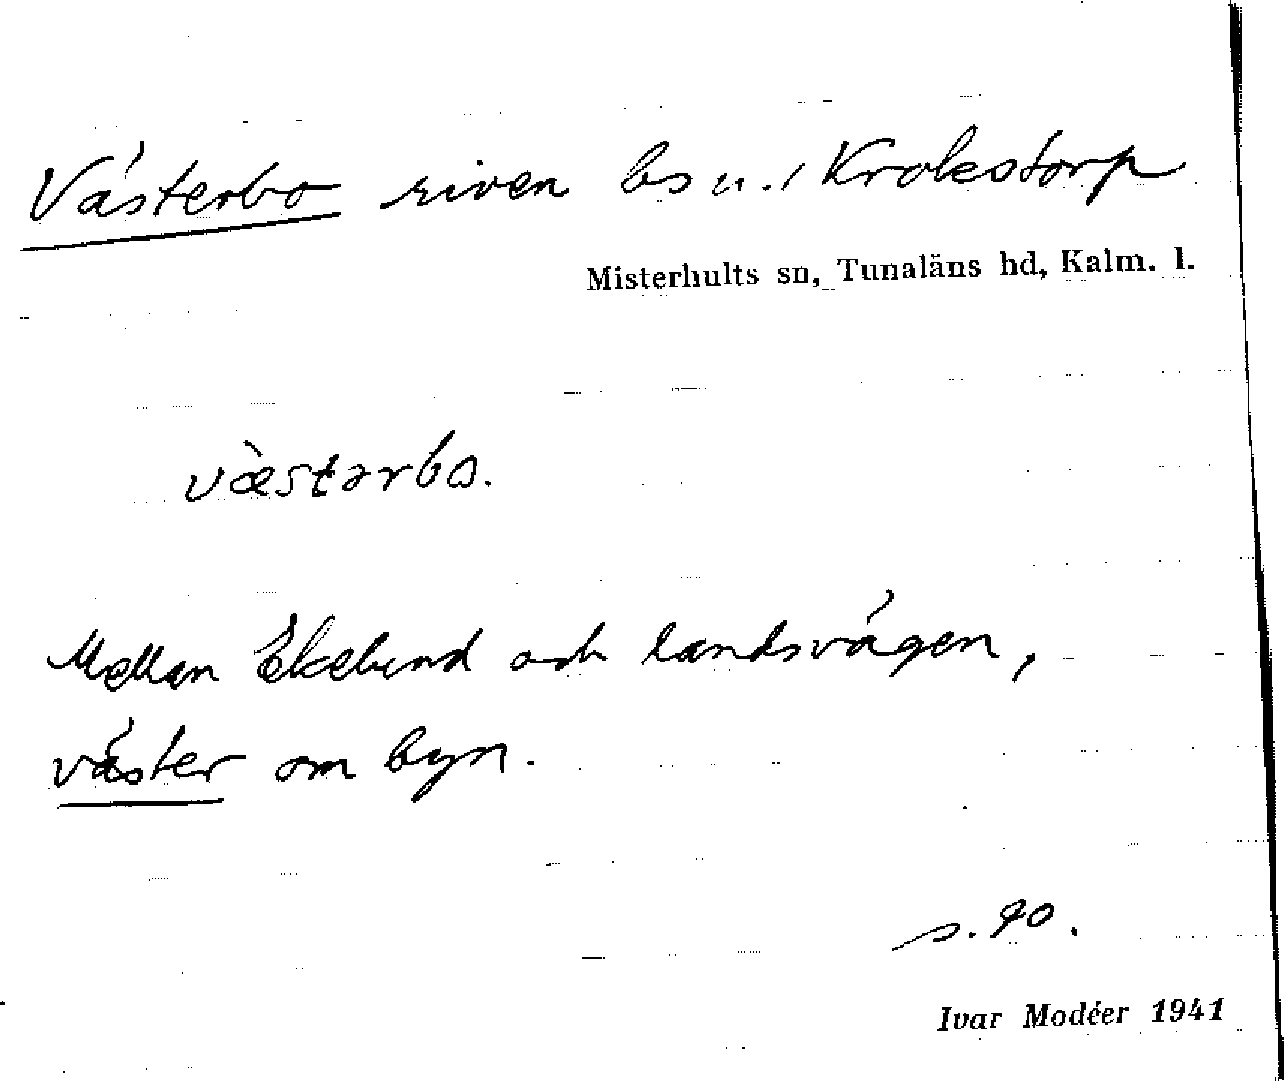 Västerbo riven bs u./ Krokstorp
Misterhults sn, Tunaläns hd, Kalm. l.
væ̀stərbo.
Mellan Ekelund och landsvägen,
väster om byn.
s. 90.
Ivar Modéer 1941